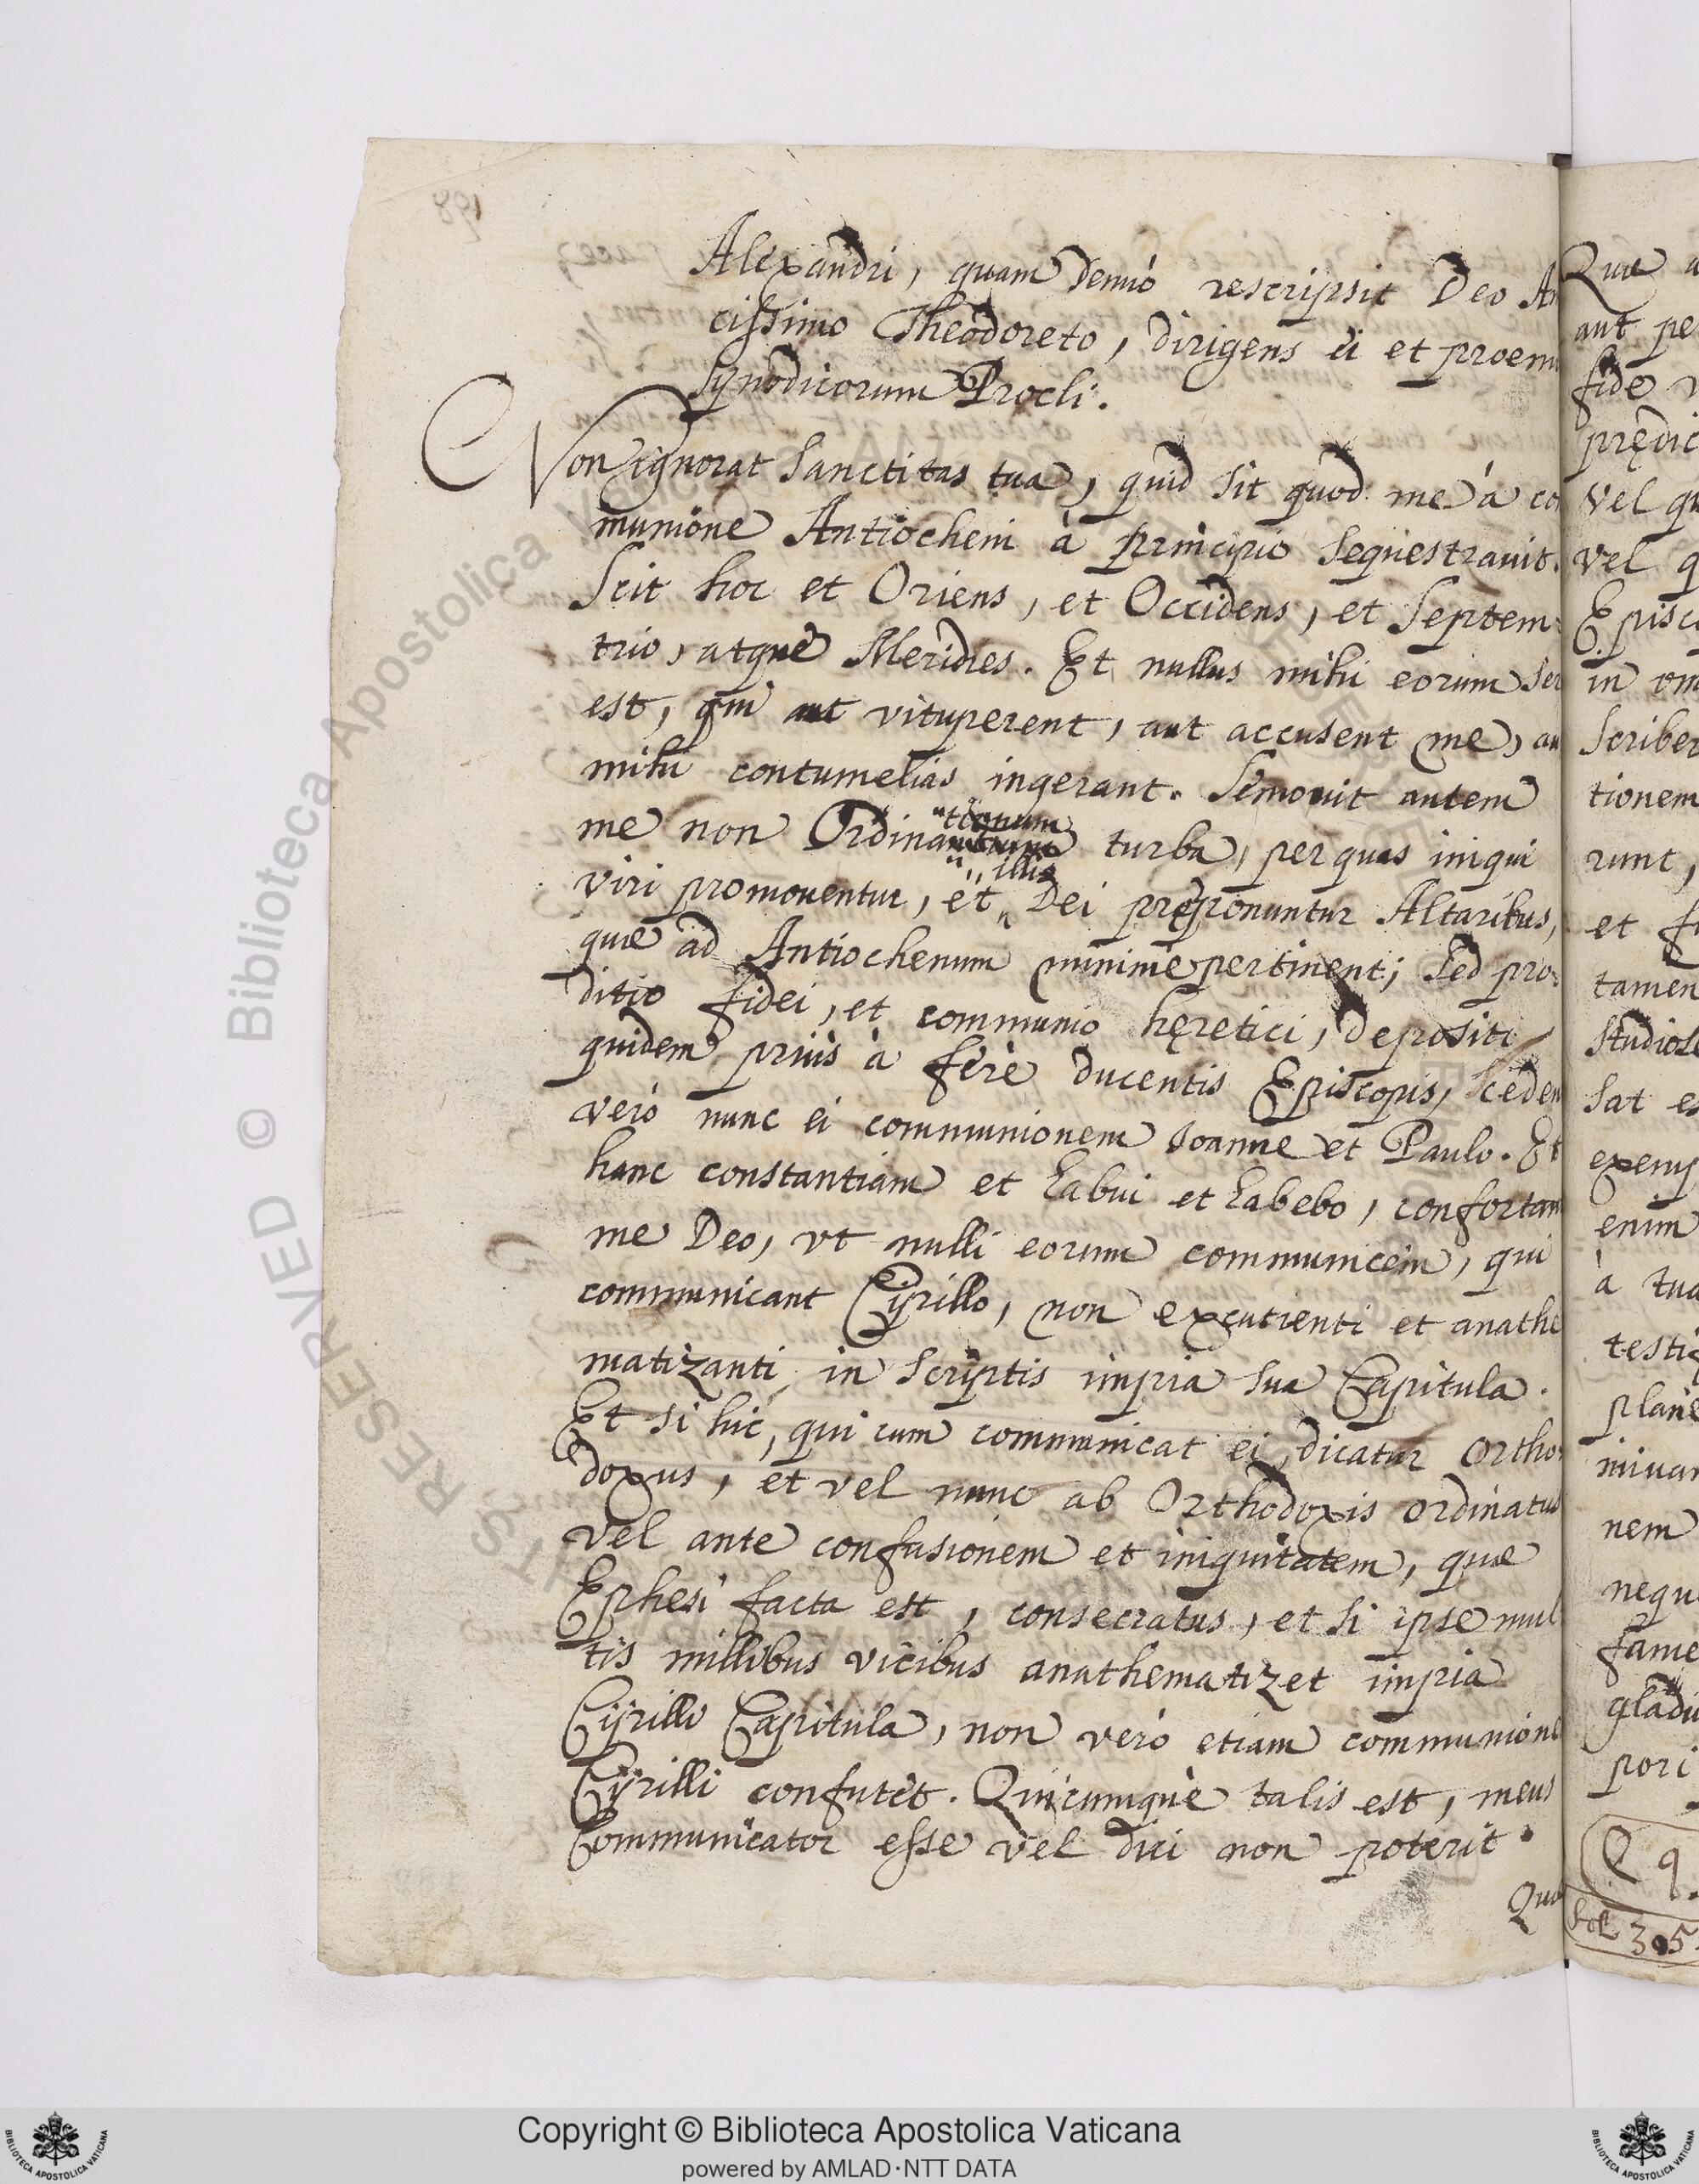 Alexandri, quam denuò rescripsit Deo Am
cissimo Theodoreto, dirigens ei et proem
synodicorum Procli.
Non ignorat Sanctitas tua, quid sit quod me à co
munione Antiocheni à principio sequestravit.
Scit hoc et Oriens, et Occidens, et Septem
trio, atque Meridies. Et nullus mihi eorum ser
est, qui aut vituperent, aut accusent me, au
mihi contumelias ingerant. Semouit autem
me non Ordinationum turba, per quas iniqui
viri promouentur, et illis Dei pręponuntur Altaribus,
quæ ad Antiochenum minimè pertinent; sed pro
ditio fidei, et communio hęretici, depositi
quidem priùs à ferè ducentis Episcopis, ceden
verò nunc ei communionem Ioanne et Paulo. Et
hanc constantiam et habui et habebo, confortan
me Deo, vt nulli eorum communicem, qui
communicant Cyrillo, non excutienti et anathe
matizanti in scriptis impia sua Capitula.
Et si hic, qui cum communicat ei, dicatur Ortho
doxus, et vel nunc ab Orthodoxis ordinatus
vel ante confusionem et iniquitatem, quæ
Ephesi facta est, consecratus, et si ipse mul
tis millibus vicibus anathematizet impia
Cyrilli Capitula, non verò etiam communione
Cyrilli confutet. Quicumque talis est, meus
Communicator esse vel dici non poterit.
Quæ
198
Quæ a
aut pe
fide v
prędic
vel qu
vel q
Episco
in om
scriber
tionem
runt,
et f
tamen
studiose
sat es
exemp
enim
à tua
testi
planè
miuar
nem
nequ
fame
gladi
pori
Q q.
fol 305.
Copyright © Biblioteca Apostolica Vaticana
powered by AMLAD·NTT DATA